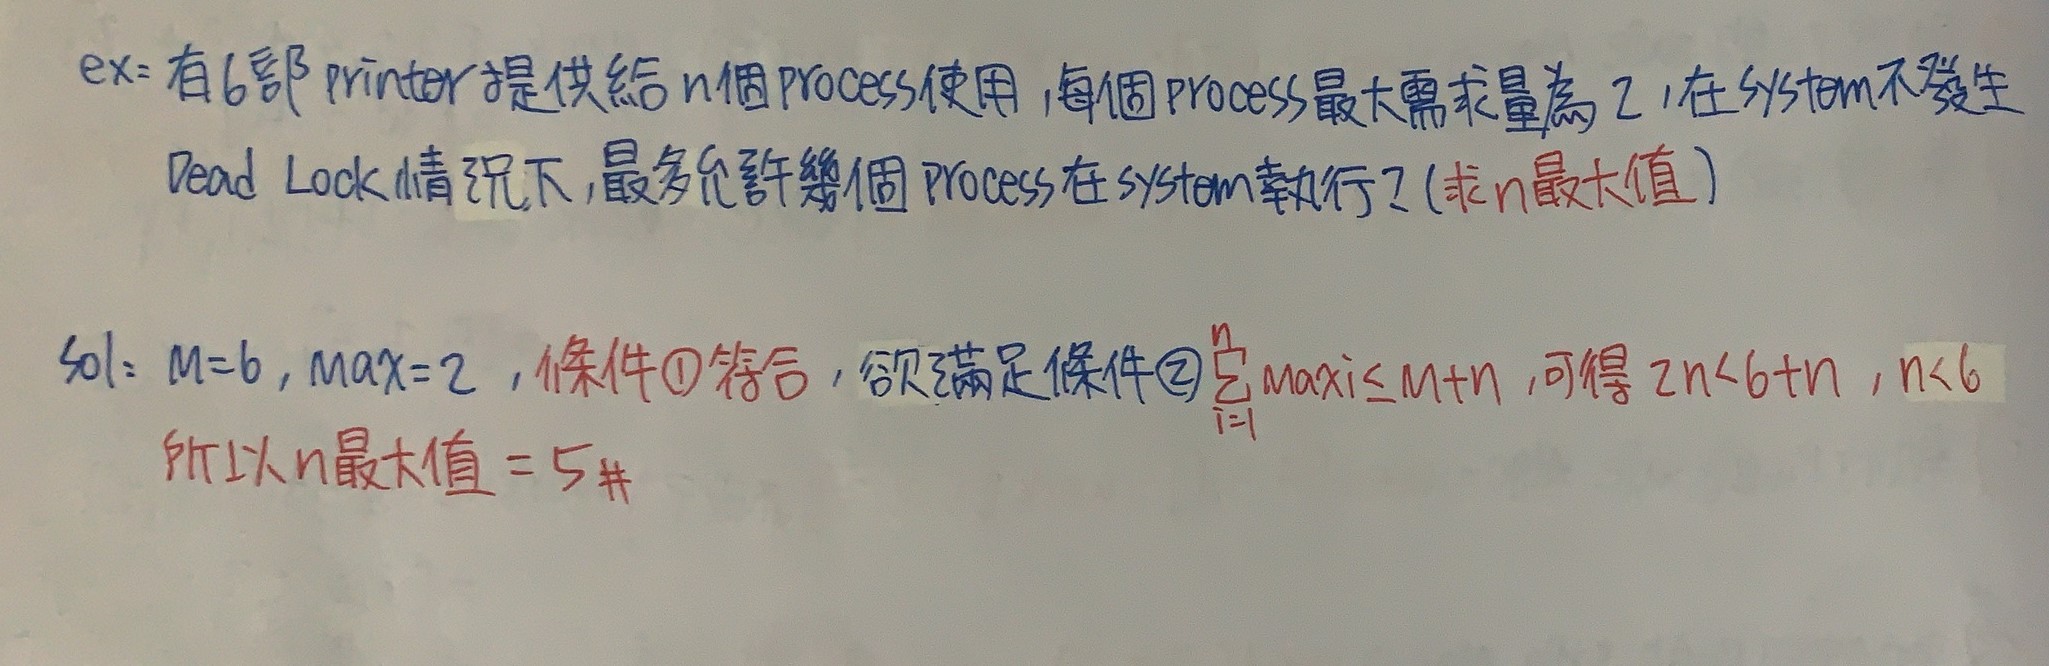 ex: 有6部printer提供給n個process使用,每個process最大需求量為2,在system不發生
Dead Lock情況下,最多允許幾個process在system執行?(求n最大值)
sol: M=6, max=2, 條件①符合, 欲滿足條件② \sum_{i=1}^{n} maxi ≤ M+n, 可得 2n<6+n, n<6
所以n最大值 = 5 #